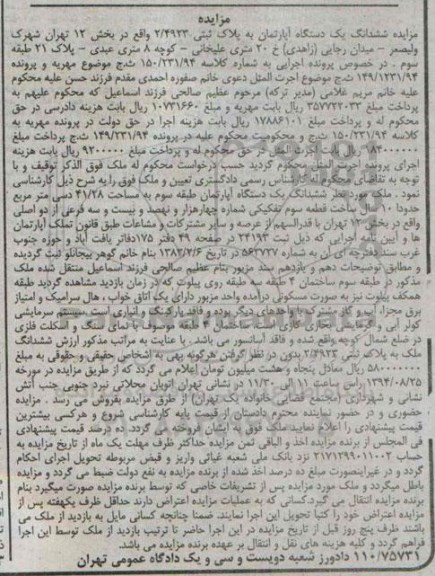 مزایده
مزایده ششدانگ یک دستگاه آپارتمان به پلاک ثبتی ۲/۴۹۲۳ واقع در بخش ۱۲ تهران شهرک
ولیعصر – میدان رجایی (زاهدی) خ ۲۰ متری علیخانی – کوچه ۸ متری عبدی – پلاک ۲۱ طبقه
سوم . در خصوص پرونده اجرایی به شماره کلاسه ۱۵۰/۲۳۱/۹۴ ث.ج موضوع مهریه و پرونده
۱۴۹/۱۲۳۱/۹۴ ث.ج موضوع اجرت المثل دعوی خانم صفوره احمدی مقدم فرزند حسن علیه محکوم
علیه خانم مریم غلامی (مدیر ترکه) مرحوم عظیم صالحی فرزند اسماعیل که محکوم علیهم به
پرداخت مبلغ ۳۵۷۷۲۲۰۳۳ ریال بابت مهریه و مبلغ ۱۰۷۳۱۶۶۰ ریال بابت هزینه دادرسی در حق
محکوم له و پرداخت مبلغ ۱۷۸۸۶۱۰۱ ریال بابت هزینه اجرا در حق دولت در پرونده مهریه به
کلاسه ۱۵۰/۲۳۱/۹۴ ث.ج و محکومیت محکوم علیه در پرونده ۱۴۹/۲۳۱/۹۴ ث.ج پرداخت مبلغ
ریال بابت اجرت المثل در حق محکوم له و پرداخت مبلغ ۹۲۰۰۰۰۰ ریال بابت هزینه
اجرای پرونده اجرت المثل محکوم گردید حسب درخواست محکوم له ملک فوق الذکر توقیف و با
توجه به تقاضای محکوم له کارشناس رسمی دادگستری تعیین و ملک فوق را به شرح ذیل کارشناسی
نمود . ملک مورد نظر ششدانگ یک دستگاه آپارتمان طبقه سوم به مساحت ۴۱/۲۸ دسی متر مربع
حدودا ۱۰ سال ساخت قطعه سوم تفکیکی شماره چهارهزار و نهصد و بیست و سه فرعی از دو اصلی
واقع در بخش ۱۲ تهران با قدرالسهم از عرصه و سایر مشترکات و مشاعات طبق قانون تملک آپارتمان
ها و آیین نامه اجرایی که ذیل ثبت ۲۴۱۹۳ در صفحه ۴۹ دفتر ۱۷۵ دفاتر یافت آباد و حوزه جنوب
غرب سند دفترچه ای آن به شماره ۵۶۳۷۲۷ در تاریخ ۱۳۸۳/۲/۶ بنام خانم گوهر بیجانلو ثبت گردیده
و مطابق توضیحات دهم و یازدهم سند مزبور بنام عظیم صالحی فرزند اسماعیل منتقل شده ملک
مذکور در طبقه سوم ساختمان ۴ طبقه سه طبقه روی پیلوت که در زمان بازدید مشاهده گردید طبقه
همکف پیلوت نیز به صورت مسکونی درآمده واحد مزبور دارای یک اتاق خواب ، هال سرامیک و امتیاز
برق مجزا، آب و گاز مشترک با واحدهای دیگر بوده و فاقد پارکینگ و انباری است سیستم سرمایشی
کولر آبی و گرمایش بخاری گازی است ساختمان ۴ طبقه موصوف با نمای سنگ و اسکلت فلزی
در ضلع شمال کوچه واقع شده و فاقد آسانسور می باشد . با عنایت به مراتب مذکور ارزش ششدانگ
ملک به پلاک ثبتی ۲/۴۹۲۳ بدون در نظر گرفتن هرگونه بهی به اشخاص حقیقی و حقوقی به مبلغ
۵۸۰۰۰۰۰۰۰ ریال معادل پنجاه و هشت میلیون تومان اعلام می گردد که از طریق مزایده در مورخه
۱۳۹۴/۰۸/۲۵ راس ساعت ۱۱ الی ۱۱/۳۰ در نشانی تهران اتوبان محلاتی نبرد جنوبی جنب آتش
نشانی و شهرداری (مجتمع قضایی خانواده یک تهران) از طریق مزایده بفروش می رسد . مزایده
حضوری و در حضور نماینده محترم دادستان از قیمت پایه کارشناسی شروع و هرکسی بیشترین
قیمت پیشنهادی را اعلام نماید ملک فوق به ایشان فروخته می گردد. ده درصد قیمت پیشنهادی
فی المجلس از برنده مزایده اخذ و الباقی ثمن مزایده حداکثر ظرف مهلت یک ماه از تاریخ مزایده به
حساب ۲۱۷۱۲۹۹۰۱۱۰۰۲ نزد بانک ملی شعبه غیاثی واریز و قبض مربوطه تحویل اجرای احکام
گردد و در غیراینصورت مبلغ ده درصد اخذ شده از برنده مزایده به نفع دولت ضبط می گردد و مزایده
باطل میگردد و ملک مورد مزایده پس از تشریفات خاصی که توسط برنده مزایده صورت میگیرد بنام
برنده مزایده انتقال می گیرد.کسانی که به عملیات مزایده اعتراض دارند حداقل ظرف یکهفته پس از
مزایده اعتراض خود را کتبا تحویل این اجرا نمایند. ضمنا چنانچه کسانی مایل به بازدید از ملک می
باشند ظرف پنج روز قبل از تاریخ مزایده در این اجرا حاضر تا ترتیب بازدید از ملک توسط این اجرا
فراهم گردد و کلیه هزینه های نقل و انتقال بر عهده برنده مزایده می باشد.
۱۱۰/۷۵۷۳۱ دادورز شعبه دویست و سی و یک دادگاه عمومی تهران